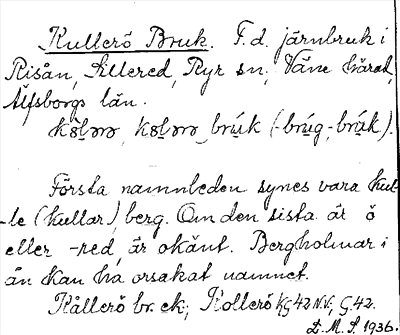 Kullerö Bruk. F.d. järnbruk i
Risån, Lillered, Ryr sn, Väne härad,
Älfsborgs län.
bruk (-brúg, -
Första namnleden synes vara kul-
-le (kullar), berg. Om den sista är ö
eller -red, är okänt. Bergholmar i
ån kan ha orsakat namnet.
Kållerö br. ek; Kollerö KG 42 N.V; G. 42.
D. M. S. 1936.